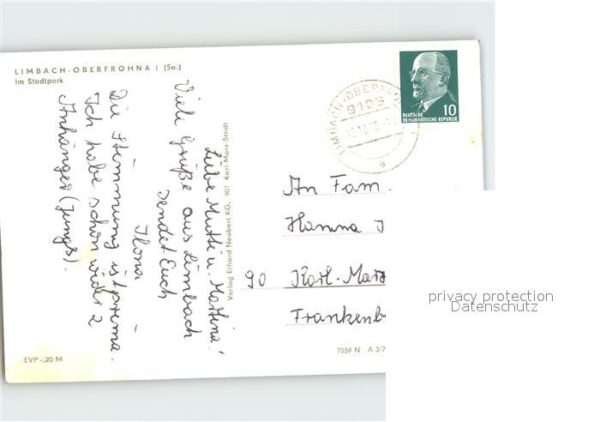 LIMBACH-OBERFROHNA I (Sa.)
Im Stadtpark
Liebe Mutti u. Martina!
Viele Grüße aus Limbach
sendet Euch
Ilona
Die Stimmung ist prima.
Ich habe schon wider 2
Anhänger (Jungs).
EVP -,20 M
Verlag Erhard Neubert KG, 901 Karl-Marx-Stadt
LIMBACH-OBERFR
9103
a
10
DEUTSCHE
DEMOKRATISCHE REPUBLIK
An Fam.
Hanna
90 Karl-Marx
Frankenb
7059 N A 3/7
privacy protection
Datenschutz